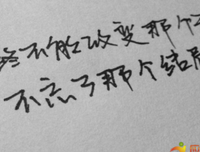 终不能改变那个
不忘了那个结局